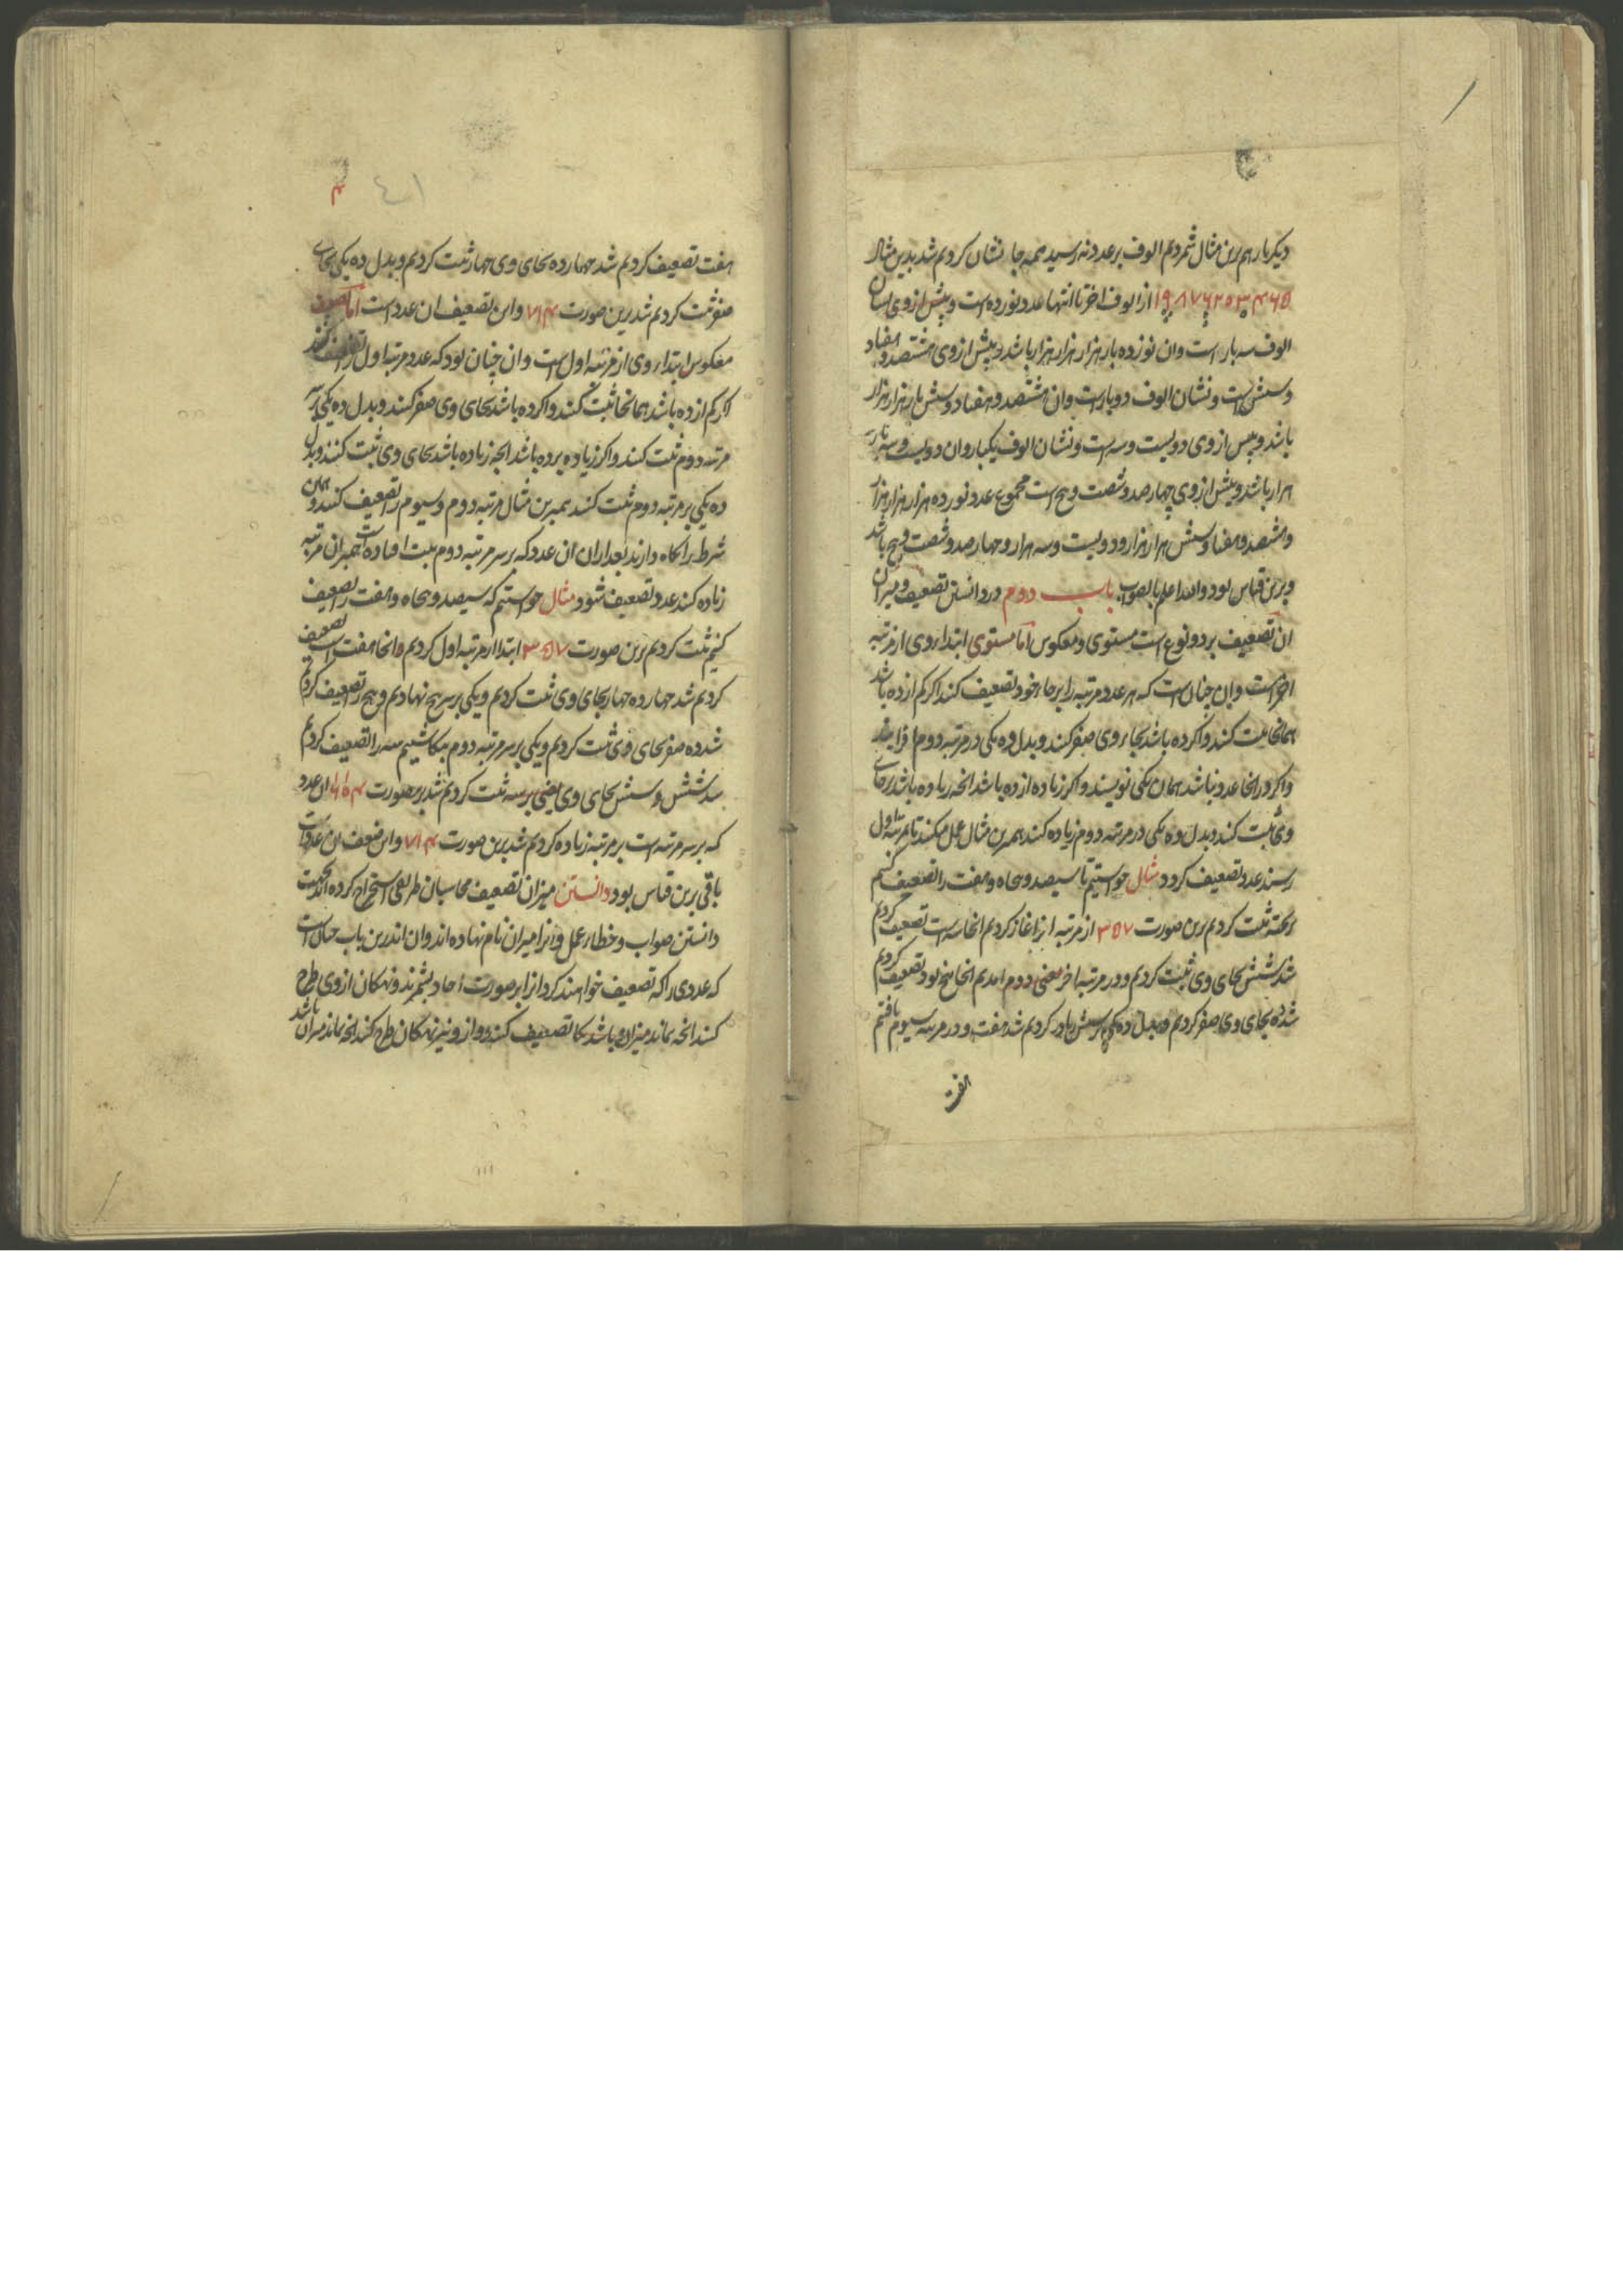 دیکر بار هم برین مثال شمردیم الوف بر عدد نه رسید همه جا نشان کردیم شد بدین مثال
۱۹۸۷۶۲۰۳۴۶۵ از الوف اخر تا انتها عدد نوزده است و پیش از وی نشان
الوف سه بار است وان نوزده بار هزار هزار هزار باشد و پیش از وی هشتصد و هفتاد
و شش است و نشان الوف دو بار است وان هشتصد و هفتاد و شش بار هزار هزار
باشد و پیش از وی دویست و سه است و نشان الوف یکبار وان دویست و سه بار
هزار باشد و پیش از وی چهارصد و شصت و پنج است مجموع عدد نوزده هزار هزار هزار
و هشتصد و هفتاد و شش هزار هزار و دویست و سه هزار و چهارصد و شصت و پنج باشد
و برین قیاس بود والله اعلم بالصواب باب دوم در دانستن تضعیف و میزان
ان تضعیف بر دو نوع است مستوی و معکوس اما مستوی ابتداء وی از مرتبه
اخر است وان چنان است که هر عدد مرتبه را بر جاء خود تضعیف کند اکر کم از ده باشد
همانجا ثبت کند و اکر ده باشد بجاء وی صفر کند و بدل ده یکی در مرتبه دوم افزایند
و اکر در انجا عدد نباشد همان یکی نویسند و اکر زیاده از ده باشد انچه زیاده باشد بر جای
وی ثبت کند و بدل ده یکی در مرتبه دوم زیاده کند همبرین مثال عمل میکند تا بمرتبه اول
رسند عدد تضعیف کردد مثال خواستیم تا سیصد و پنجاه و هفت را تضعیف کنیم
بر تخته ثبت کردیم برین صورت ۳۵۷ از مرتبه اخر اغاز کردیم انجا سه است تضعیف کردیم
شد شش بجای وی ثبت کردیم و در مرتبه اخر یعنی دوم امدیم انجا پنج بود تضعیف کردیم
شد ده بجای وی صفر کردیم و ببدل ده یکی بر شش زیاده کردیم شد هفت و در مرتبه سیوم یافتم
هفت
هفت تضعیف کردیم شد چهارده بجای وی چهار ثبت کردیم و بدل ده یکی بجای
صفر ثبت کردیم شد برین صورت ۷۱۴ و این تضعیف ان عدد است اما تضعیف
معکوس ابتداء وی از مرتبه اول است وان چنان بود که عدد مرتبه اول را تضعیف کنند
اکر کم از ده باشد همانجا ثبت کنند و اکر ده باشد بجای وی صفر کنند و بدل ده یکی بر سر
مرتبه دوم ثبت کنند و اکر زیاده بر ده باشد انچه زیاده باشد بجای وی ثبت کنند و بدل
ده یکی بر مرتبه دوم ثبت کنند همبرین مثال مرتبه دوم و سیوم را تضعیف کنند و همان
شرط را نکاه دارند بعد ازان ان عدد که بر سر مرتبه دوم ثبت افتاده است همبران مرتبه
زیاده کند عدد تضعیف شود مثال خواستیم که سیصد و پنجاه و هفت را تضعیف
کنیم ثبت کردیم برین صورت ۳۵۷ ابتدا از مرتبه اول کردیم و انجا هفت است تضعیف
کردیم شد چهارده چهار بجای وی ثبت کردیم و یکی بر سر پنج نهادیم و پنج را تضعیف کردیم
شد ده صفر بجای وی ثبت کردیم و یکی بر سر مرتبه دوم بنکاشتیم سه را تضعیف کردیم
شد شش و شش بجای وی یعنی بر سه ثبت کردیم شد برین صورت ان عدد
که بر سر مرتبه است بر مرتبه زیاده کردیم شد برین صورت ۷۱۴ و این ضعف ان عدد است
باقی برین قیاس بود دانستن میزان تضعیف محاسبان طریقی استخراج کرده اند بجهت
دانستن صواب و خطاء عمل و انرا میزان نام نهاده اند وان اندرین باب چنان است
که عددی را که تضعیف خواهند کرد انرا بر صورت احاد بشمرند و نهکان از وی طرح
کنند انچه بماند میزان وی باشد تضعیف کنند و از و نیز نهکان طرح کند انچه بماند میزان باشد